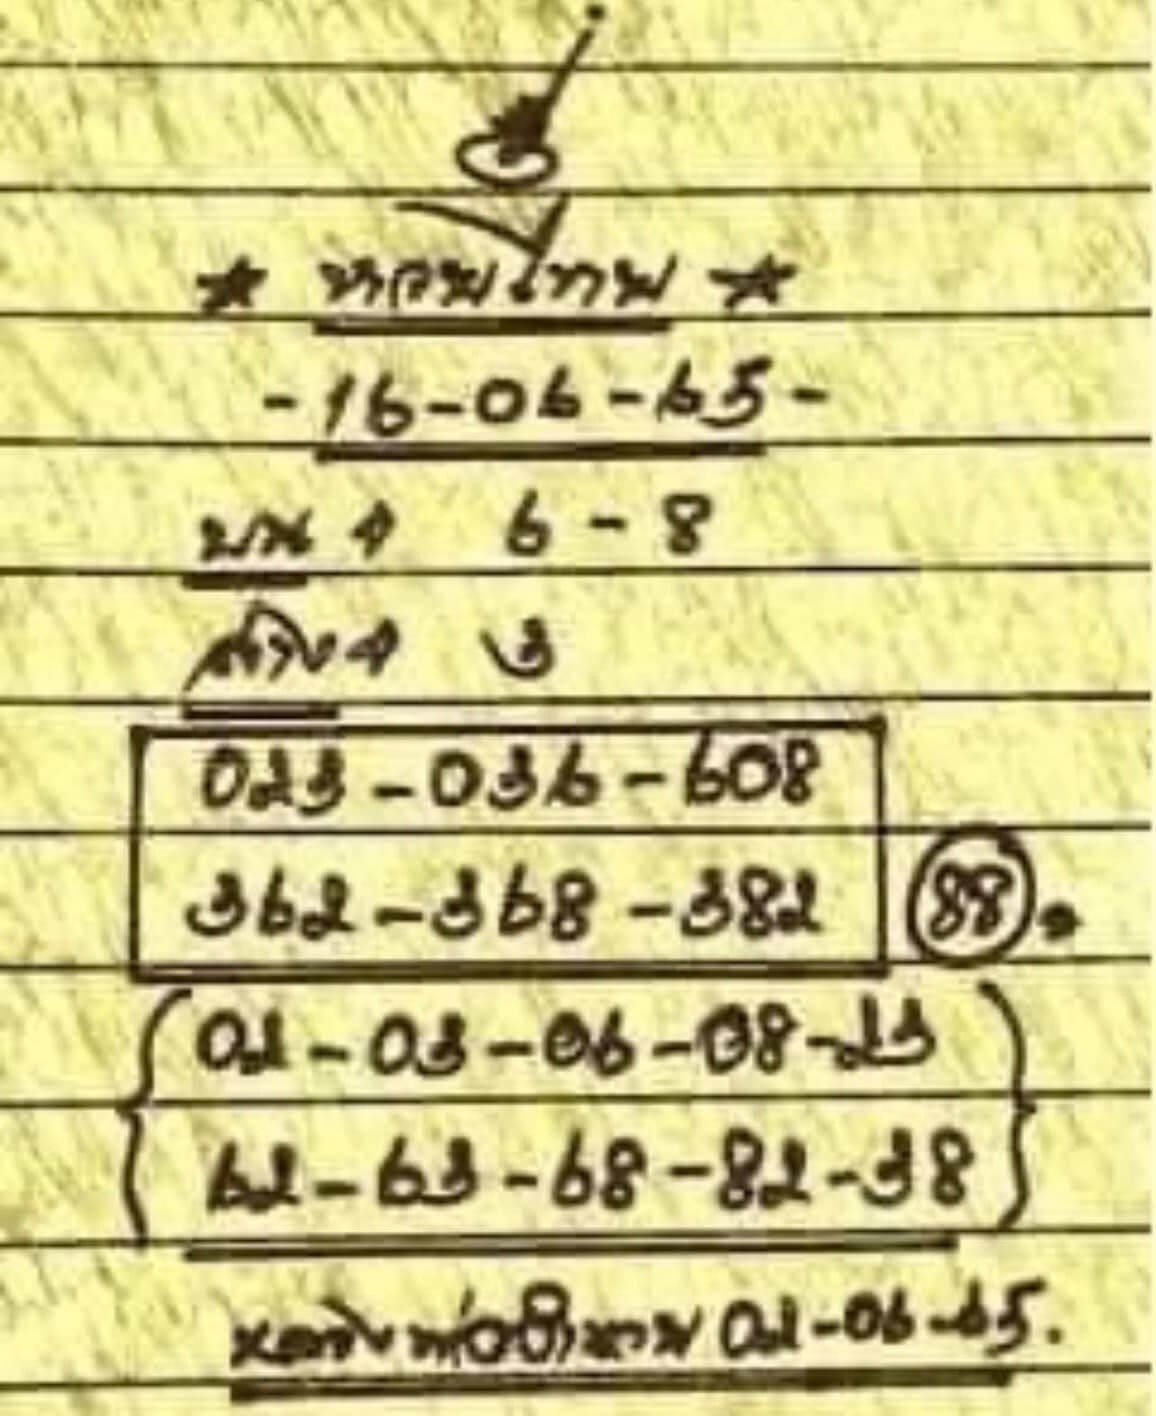 ★ หลวยไทย ★
-16-06-65-
บน ↑ 6-8
ล่าง ↑ 3
023-036-608
362-368-382 88.
02-03-06-08-23
62-63-68-82-38
02-06-65.